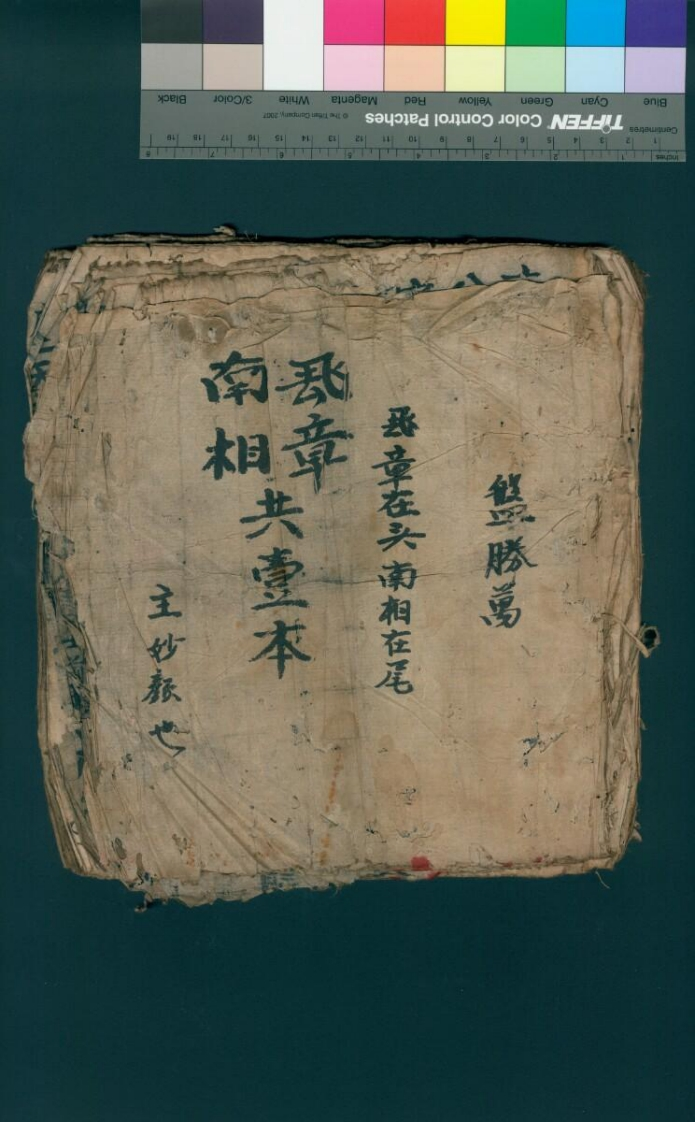 盤勝萬
飛章在头南相在尾
飛章
南相
共壹本
主妙顏也
Blue
Cyan
Green
Yellow
Red
Magenta
White
3/Color
Black
TIFFEN Color Control Patches
© The Tiffen Company, 2007
Centimetres
1 2 3 4 5 6 7 8 9 10 11 12 13 14 15 16 17 18 19
Inches
1 2 3 4 5 6 7 8